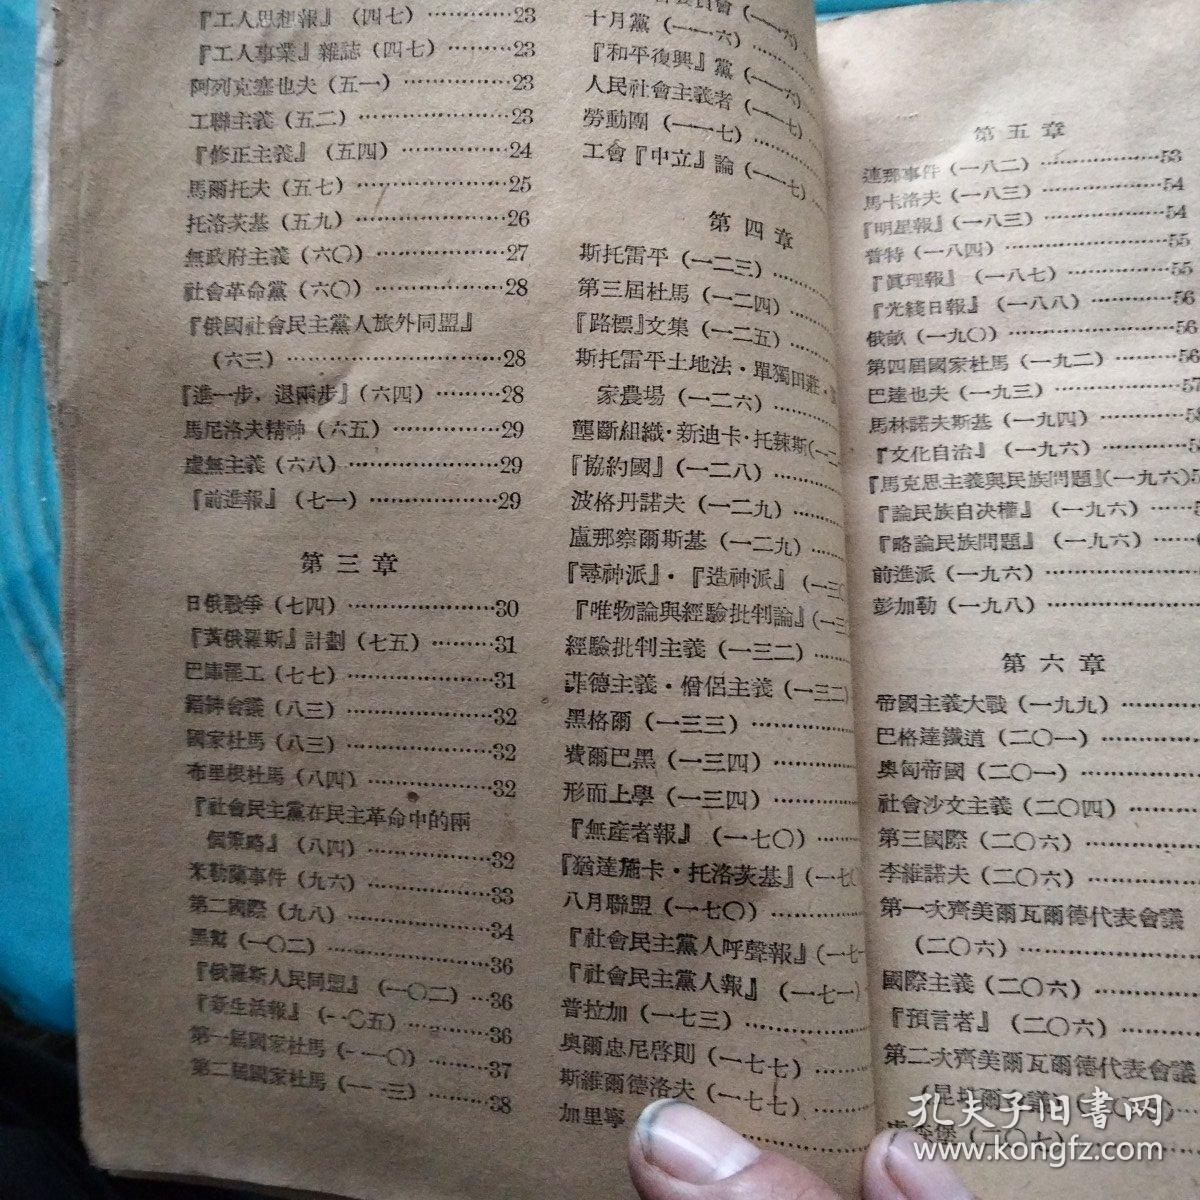 『工人思想報』(四七) ………23
『工人事業』雜誌(四七) ………23
阿列克塞也夫(五一) ………23
工聯主義(五二) ………23
『修正主義』(五四) ………24
馬爾托夫(五七) ………25
托洛茨基(五九) ………26
無政府主義(六〇) ………27
社會革命黨(六〇) ………28
『俄國社會民主黨人旅外同盟』
(六三) ………28
『進一步，退兩步』(六四) ………28
馬尼洛夫精神(六五) ………29
虛無主義(六八) ………29
『前進報』(七一) ………29
第三章
日俄戰爭(七四) ………30
『黃俄羅斯』計劃(七五) ………31
巴庫罷工(七七) ………31
會議(八三) ………32
國家杜馬(八三) ………32
布里根杜馬(八四) ………32
『社會民主黨在民主革命中的兩
個策略』(八四) ………32
米勒蘭事件(九六) ………33
第二國際(九八) ………34
黑幫(一〇二) ………36
『俄羅斯人民同盟』(一〇二) …36
『新生活報』(一〇五) ………36
第一屆國家杜馬(一一〇) ………37
第二屆國家杜馬(一一三) ………38
十月黨(一一六) ………
『和平復興』黨(一一六)
人民社會主義者(一一七)
勞動團(一一七) ………
工會『中立』論(一一七)
第四章
斯托雷平(一二三) ………
第三屆杜馬(一二四) ………
『路標』文集(一二五) ………
斯托雷平土地法·單獨田莊·
家農場(一二六) ………
壟斷組織·新迪卡·托辣斯(一二
『協約國』(一二八) ………
波格丹諾夫(一二九) ………
盧那察爾斯基(一二九) ………
『尋神派』·『造神派』(一三〇
『唯物論與經驗批判論』(一三
經驗批判主義(一三二) ………
菲德主義·僧侶主義(一三二)
黑格爾(一三三) ………
費爾巴黑(一三四) ………
形而上學(一三四) ………
『無產者報』(一七〇) ………
『猶達施卡·托洛茨基』(一七〇
八月聯盟(一七〇) ………
『社會民主黨人呼聲報』(一七一
『社會民主黨人報』(一七一)
普拉加(一七三) ………
奧爾忠尼啓則(一七七) ………
斯維爾德洛夫(一七七) ………
加里寧
第五章
連那事件(一八二) ………53
馬卡洛夫(一八三) ………54
『明星報』(一八三) ………54
普特(一八四) ………55
『眞理報』(一八七) ………55
『光綫日報』(一八八) ………56
俄畝(一九〇) ………56
第四屆國家杜馬(一九二) ………56
巴達也夫(一九三) ………57
馬林諾夫斯基(一九四) ………5
『文化自治』(一九六) ………5
『馬克思主義與民族問題』(一九六)5
『論民族自決權』(一九六) ………
『略論民族問題』(一九六) ………
前進派(一九六) ………
彭加勒(一九八) ………
第六章
帝國主義大戰(一九九) ………
巴格達鐵道(二〇一) ………
奧匈帝國(二〇一) ………
社會沙文主義(二〇四) ………
第三國際(二〇六) ………
李維諾夫(二〇六) ………
第一次齊美爾瓦爾德代表會議
(二〇六) ………
國際主義(二〇六) ………
『預言者』(二〇六) ………
第二次齊美爾瓦爾德代表會議
孔夫子旧书网
www.kongfz.com